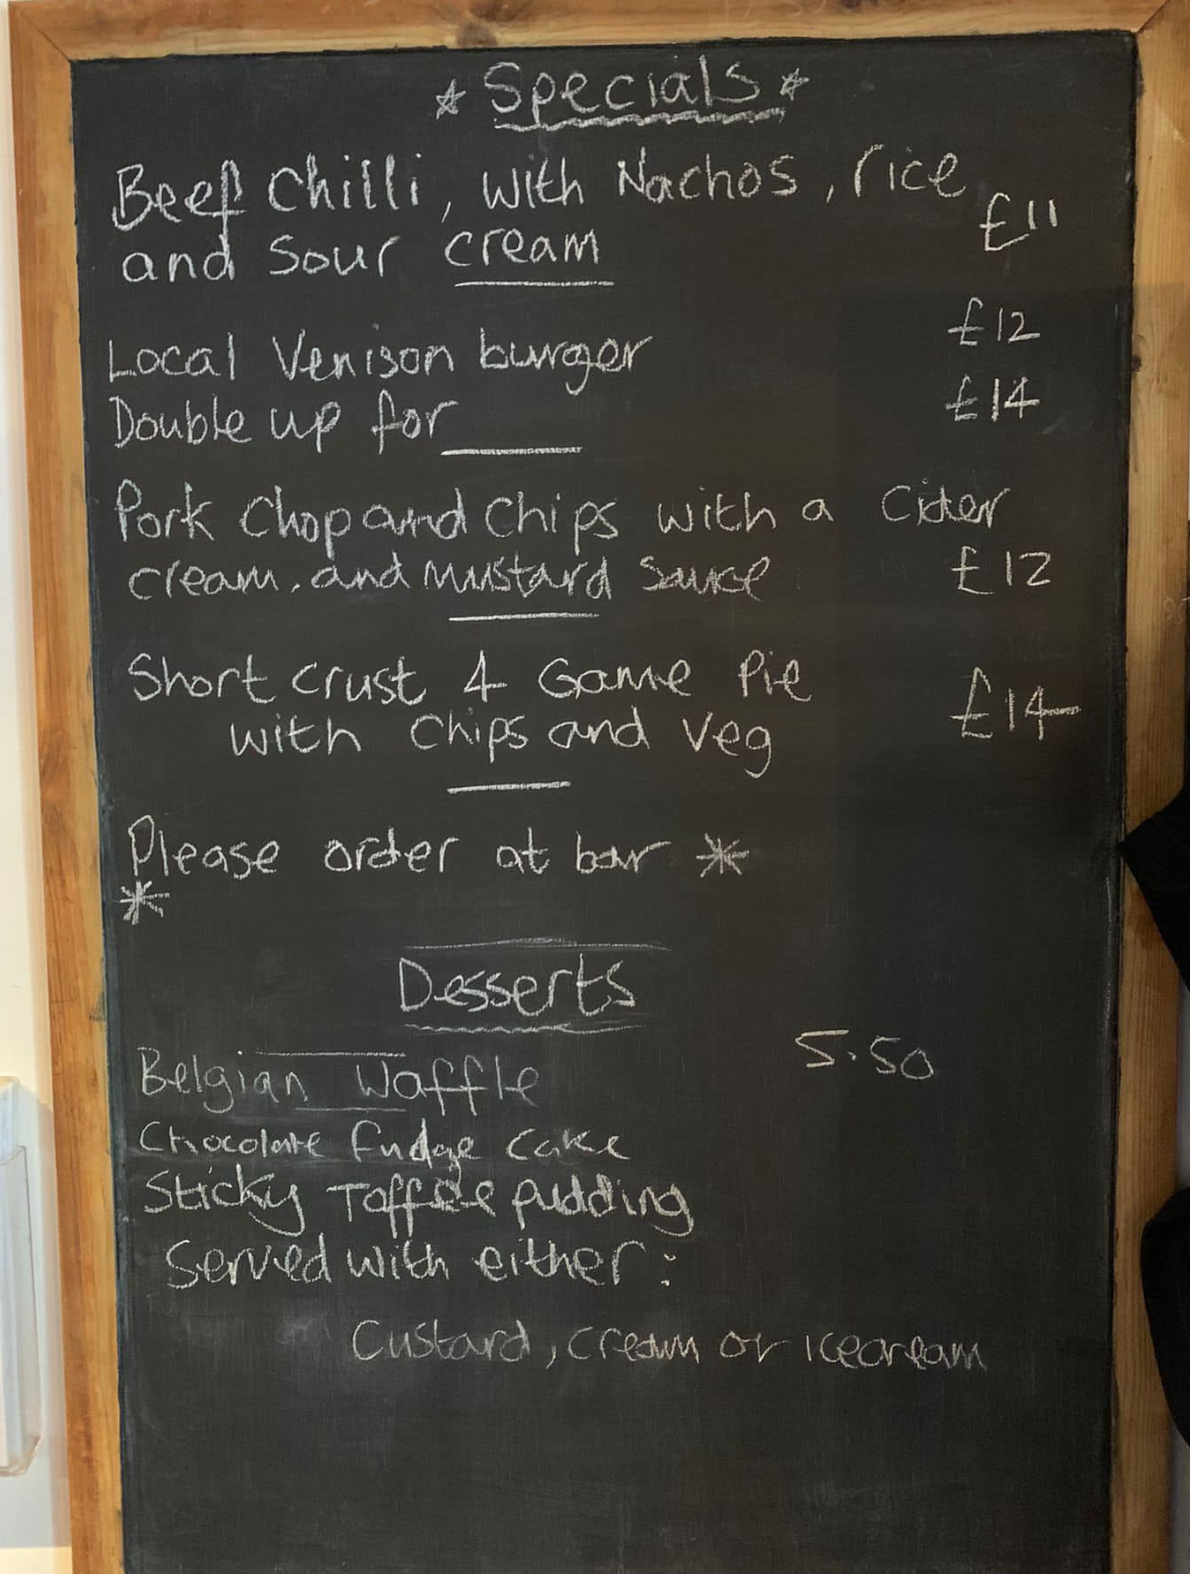 * Specials *
Beef Chilli, with Nachos, rice
£11
and Sour cream
£12
Local Venison burger
£14
Double up for
Pork Chop and Chips with a Cider
cream, and Mustard Sauce £12
Short crust 4 Game Pie
£14
with Chips and Veg
Please order at bar *
*
Desserts
5.50
Belgian Waffle
Chocolate fudge cake
Sticky Toffee pudding
Served with either:
Custard, cream or icecream